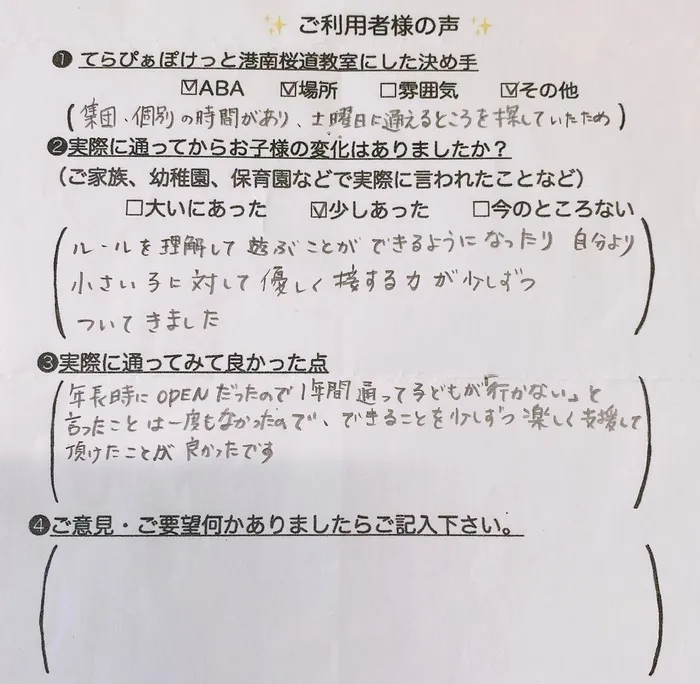 ✨ ご利用者様の声 ✨
❶ てらぴぁぽけっと港南桜道教室にした決め手
☑ABA ☑場所 □雰囲気 ☑その他
(集団、個別の時間があり、土曜日に通えるところを探していたため)
❷実際に通ってからお子様の変化はありましたか?
(ご家族、幼稚園、保育園などで実際に言われたことなど)
□大いにあった ☑少しあった □今のところない
ルールを理解して遊ぶことができるようになったり 自分より
小さい子に対して優しく接する力が少しずつ
ついてきました
❸実際に通ってみて良かった点
年長時にOPENだったので1年間通って子どもが「行かない」と
言ったことは一度もなかったので、できることを少しずつ楽しく支援して
頂けたことが良かったです
❹ご意見・ご要望何かありましたらご記入下さい。